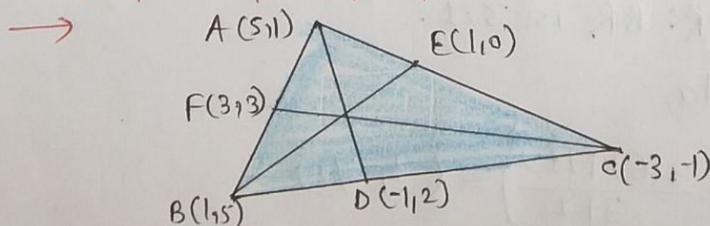 A (5,1)
E(1,0)
F(3,3)
C(-3,-1)
B(1,5)
D(-1,2)